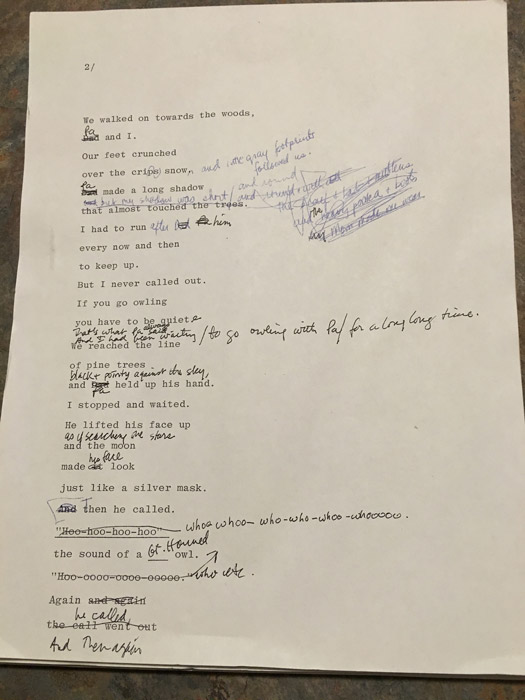 2/
We walked on towards the woods,
Pa
Dad and I.
Our feet crunched
over the crips snow, and little gray footprints
followed us.
Pa made a long shadow
but my shadow was short / and round
that almost touched the trees.
I had to run after him
every now and then
to keep up.
But I never called out.
If you go owling
you have to be quiet
That's what Pa always said.
And I had been waiting / to go owling with Pa / for a long long time.
We reached the line
of pine trees
black + pointy against the sky,
and Pa held up his hand.
I stopped and waited.
He lifted his face up
as if searching the stars
and the moon
his face
made look
just like a silver mask.
And then he called.
"Hoo-hoo-hoo-hoo" whoo whoo- who-who-who-whooooo.
the sound of a Gt. Horned owl.
"Hoo-oooo-oooo-ooooo." who etc.
Again and again
he called,
the call went out
And Then again